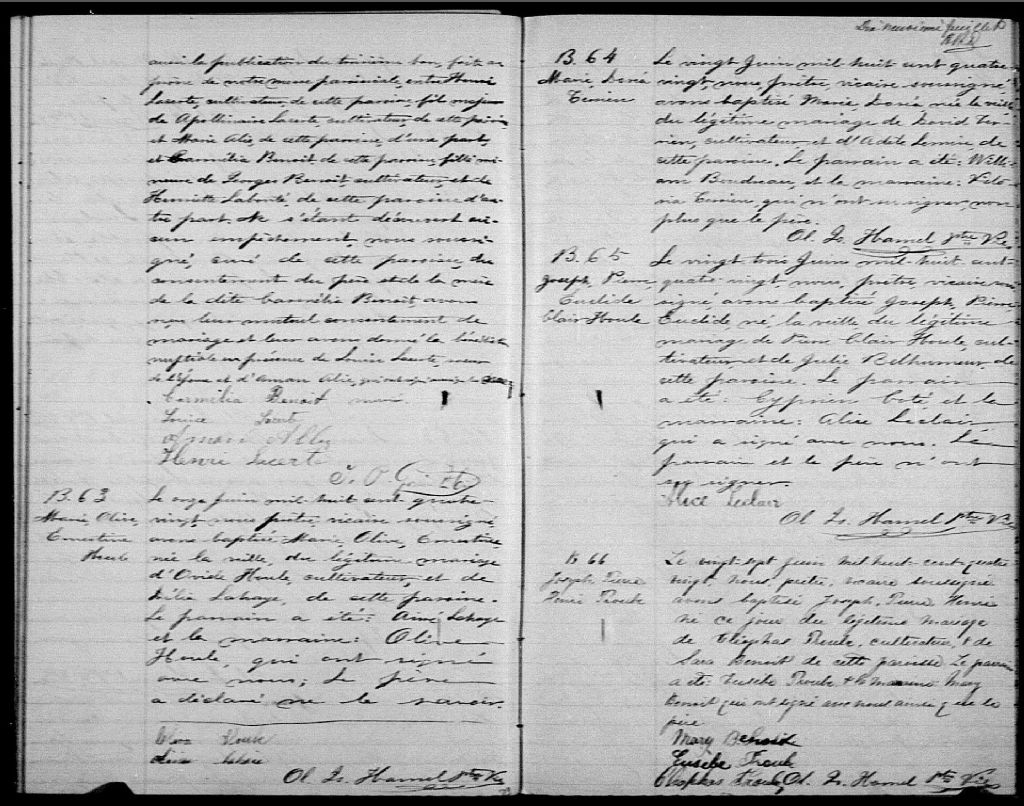 aussi la publication du troisième ban, faite au
prône de notre messe paroissiale, entre Henri
Lacerte, cultivateur, de cette paroisse, fils majeur
de Apollinaire Lacerte, cultivateur, de cette paroisse
et Marie Alie, de cette paroisse, d'une part,
et Carmélia Benoit, de cette paroisse, fille mi-
neure de Georges Benoit, cultivateur, et de
Henriette Laborté, de cette paroisse d'au-
tre part. Ne s'étant découvert au-
cun empêchement, nous soussi-
gné, curé de cette paroisse, du
consentement du père et de la mère
de la dite Carmélia Benoit, avons
reçu leur mutuel consentement de
mariage et leur avons donné la bénédiction
nuptiale en présence de Louise Lacerte, soeur
de l'époux et d'Aman Alie, qui ont signé
Carmélia Benoit
Louise Lacerte
Aman Ally
Henri Lacerte
B. 63
Marie, Olive,
Ernestine
Houle
Le onze Juin mil-huit-cent-quatre-
vingt, nous prêtre, vicaire soussigné
avons baptisé Marie, Olive, Ernestine,
née la veille, du légitime mariage
d'Ovide Houle, cultivateur, et de
Délia Lahaye, de cette paroisse.
Le parrain a été: Aimé Lahaye
et la marraine: Olive
Houle, qui ont signé
avec nous; Le père
a déclaré ne le savoir.
Houle
Ol. Is. Hamel Ptre Vic
Dix-neuvième feuillet
B. 64
Marie, Doria
Terrien
Le vingt Juin mil-huit-cent-quatre-
vingt, nous, prêtre, vicaire soussigné
avons baptisé Marie, Doria née la veille
du légitime mariage de David Ter-
rien, cultivateur, et d'Adèle Lemire, de
cette paroisse. Le parrain a été: Willi-
am Boudreau, et la marraine: Victo-
ria Terrien, qui n'ont su signer, non
plus que le père.
Ol. Is. Hamel Ptre Vic
B. 65
Joseph, Pierre
Euclide
Clair Houle
Le vingt-trois Juin mil-huit-cent-
quatre-vingt nous, prêtre, vicaire sous-
signé avons baptisé Joseph, Pierre
Euclide né, la veille du légitime
mariage de Pierre Clair Houle, cul-
tivateur, et de Julie Belhumeur, de
cette paroisse. Le parrain
a été Cyprien Coté et la
marraine: Alice Leclair
qui a signé avec nous. Le
parrain et le père n'ont
su signer.
Alice Leclair
Ol. Is. Hamel Ptre Vic
B 66
Joseph Pierre
Henri Proulx
Le vingt-sept Juin mil huit-cent-quatre
vingt, nous, prêtre, vicaire soussigné
avons baptisé Joseph, Pierre, Henri
né ce jour du légitime mariage
de Cléophas Proulx, cultivateur, & de
Sara Benoit de cette paroisse. Le parrain
a été: Eusèbe Proulx & la marraine Mary
Benoit qui ont signé avec nous ainsi que le
père
Mary Benoit
Eusèbe Proulx
Cléophas Proulx, Ol. Is. Hamel Ptre Vic